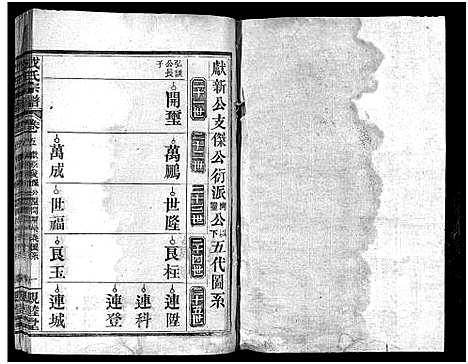 獻新公支傑公衍派開璽公以下五代圖系
二十一世
二十二世
二十三世
二十四世
二十五世
弘謨公長子
開璽
萬鵬
萬成
世隆
世福
良枉
良玉
連陞
連科
連登
連城
成氏宗譜
卷五
親睦堂